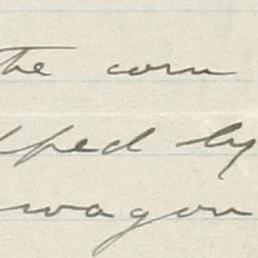 the corn
pped by
wagon